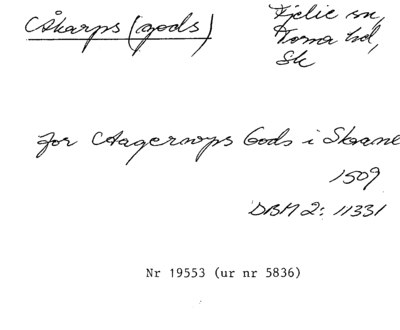 Åkarps (gods)
Fjelie sn,
Torna hd,
Sk
for Aagerops Gods i Skaane
1509
DBM 2: 11331
Nr 19553 (ur nr 5836)